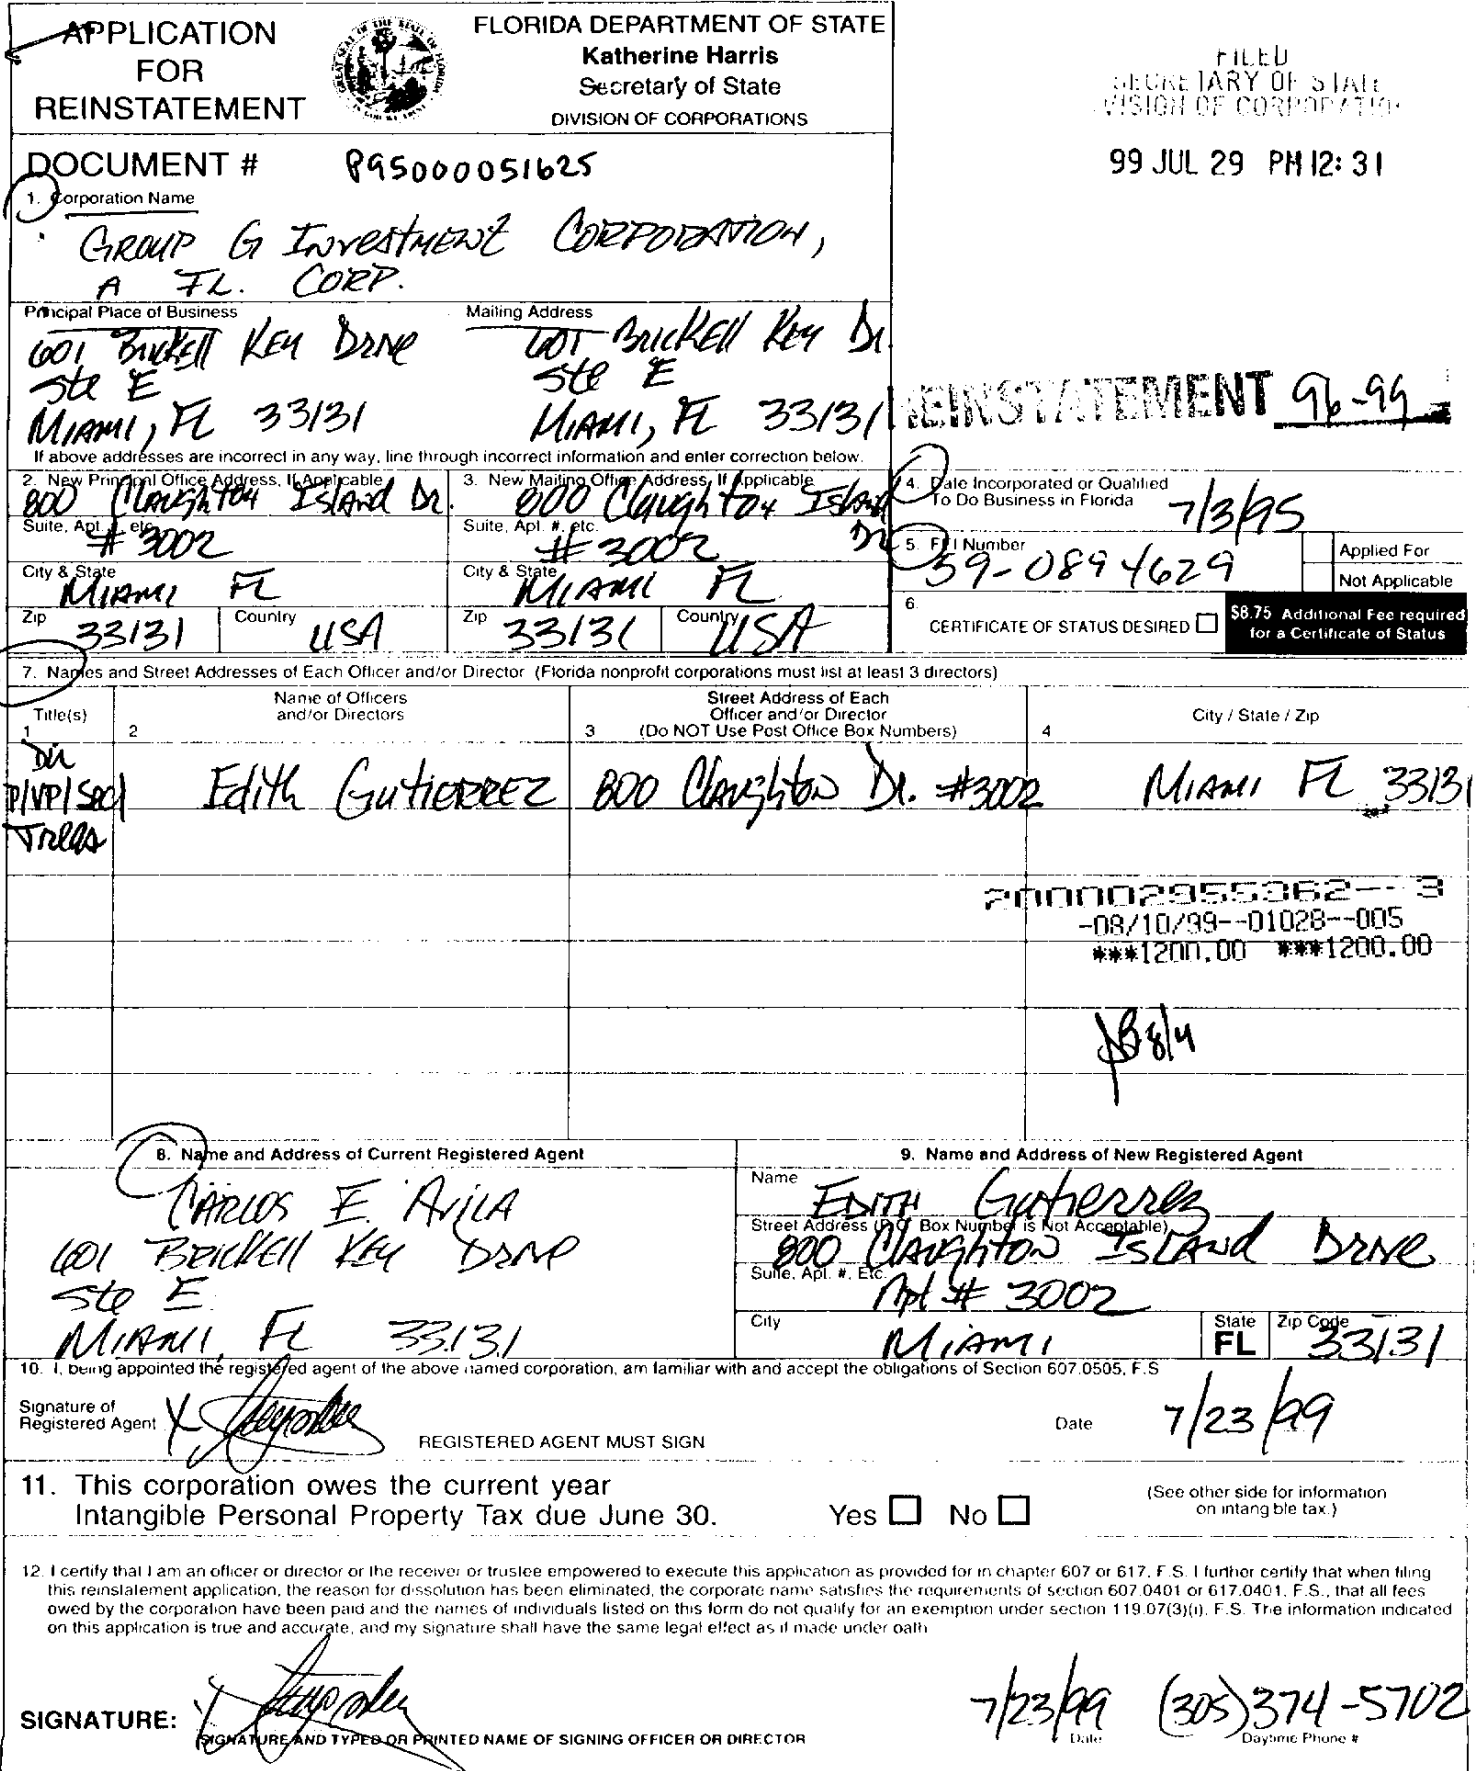 APPLICATION
FOR
REINSTATEMENT
FLORIDA DEPARTMENT OF STATE
Katherine Harris
Secretary of State
DIVISION OF CORPORATIONS
FILED
SECRETARY OF STATE
VISION OF CORPORATION
99 JUL 29 PM 12:31
DOCUMENT # P95000051625
1. Corporation Name
GROUP G INVESTMENT CORPORATION,
A FL. CORP.
Principal Place of Business
601 Brickell Key Drive
Ste E
Miami, FL 33131
Mailing Address
601 Brickell Key Dr.
Ste E
Miami, FL 33131
REINSTATEMENT 96-99
If above addresses are incorrect in any way, line through incorrect information and enter correction below.
2. New Principal Office Address, If Applicable
800 Claughton Island Dr.
Suite, Apt. #, etc.
# 3002
City & State
Miami FL
Zip 33131 Country USA
3. New Mailing Office Address, If Applicable
800 Claughton Island Dr
Suite, Apt. #, etc.
# 3002
City & State
Miami FL
Zip 33131 Country USA
4. Date Incorporated or Qualified
To Do Business in Florida 7/3/95
5. FEI Number
59-0894629
Applied For
Not Applicable
6.
CERTIFICATE OF STATUS DESIRED
$8.75 Additional Fee required
for a Certificate of Status
7. Names and Street Addresses of Each Officer and/or Director (Florida nonprofit corporations must list at least 3 directors)
Title(s)
1
Name of Officers
and/or Directors
2
Street Address of Each
Officer and/or Director
3 (Do NOT Use Post Office Box Numbers)
City / State / Zip
4
Dir
P/VP/Sec/ Edith Gutierrez 800 Claughton Dr. #3002 Miami FL 33131
Treas
200002955362--3
-08/10/99--01028--005
***1200.00 ***1200.00
8/4
8. Name and Address of Current Registered Agent
Carlos E. Avila
601 Brickell Key Drive
Ste E
Miami, FL 33131
9. Name and Address of New Registered Agent
Name
Edith Gutierrez
Street Address (P.O. Box Number is Not Acceptable)
800 Claughton Island Drive
Suite, Apt. #, Etc.
Apt # 3002
City
Miami
State
FL
Zip Code
33131
10. I, being appointed the registered agent of the above named corporation, am familiar with and accept the obligations of Section 607.0505, F.S
Signature of
Registered Agent X
REGISTERED AGENT MUST SIGN
Date 7/23/99
11. This corporation owes the current year
Intangible Personal Property Tax due June 30. Yes No
(See other side for information
on intangible tax.)
12. I certify that I am an officer or director or the receiver or trustee empowered to execute this application as provided for in chapter 607 or 617, F.S. I further certify that when filing
this reinstatement application, the reason for dissolution has been eliminated, the corporate name satisfies the requirements of section 607.0401 or 617.0401, F.S., that all fees
owed by the corporation have been paid and the names of individuals listed on this form do not qualify for an exemption under section 119.07(3)(i), F.S. The information indicated
on this application is true and accurate, and my signature shall have the same legal effect as if made under oath
SIGNATURE: X
SIGNATURE AND TYPED OR PRINTED NAME OF SIGNING OFFICER OR DIRECTOR
7/23/99
Date
(305)374-5702
Daytime Phone #